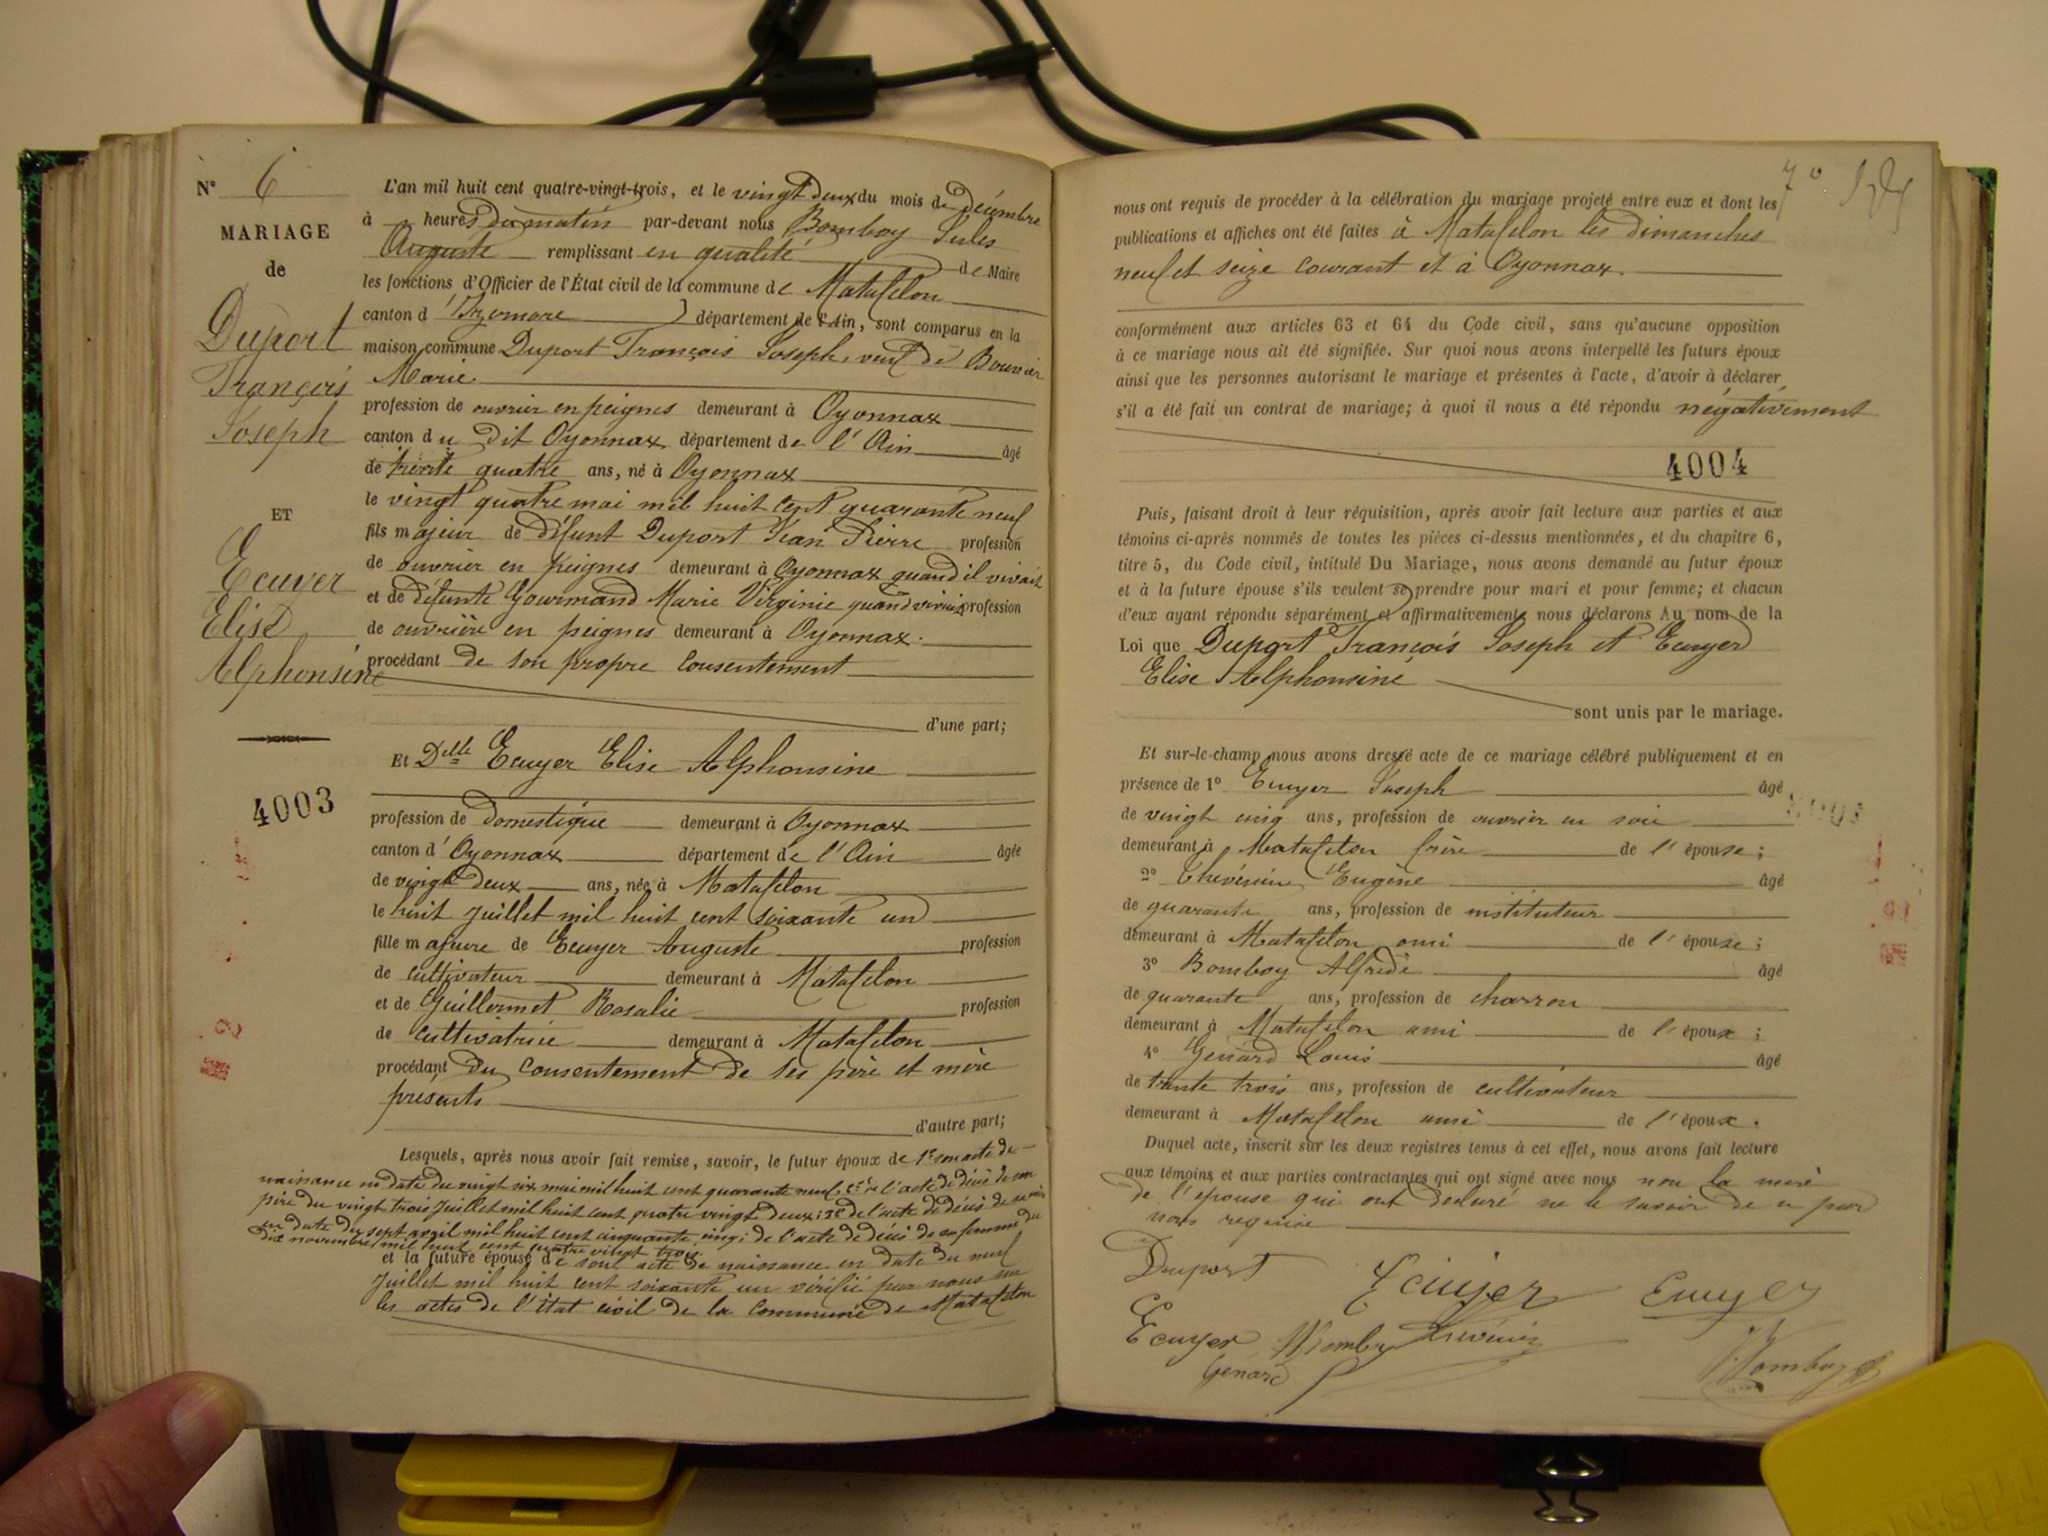 N° 6
MARIAGE
de
Duport
François
Joseph
ET
Ecuyer
Elise
Alphonsine
4003
L'an mil huit cent quatre-vingt-trois, et le vingt deux du mois de décembre
à heures du matin par-devant nous Bomboy Jules
Auguste remplissant en qualité de Maire
les fonctions d'Officier de l'État civil de la commune de Matafelon
canton d'Izernore département de l'Ain, sont comparus en la
maison commune Duport François Joseph, veuf de Bouvier
Marie
profession de ouvrier en peignes demeurant à Oyonnax
canton du dit Oyonnax département de l'Ain âgé
de trente quatre ans, né à Oyonnax
le vingt quatre mai mil huit cent quarante neuf
fils majeur de défunt Duport Jean Pierre profession
de ouvrier en peignes demeurant à Oyonnax quand il vivait
et de défunte Gourmand Marie Virginie quand vivait profession
de ouvrière en peignes demeurant à Oyonnax.
procédant de son propre consentement
d'une part;
Et Delle Ecuyer Elise Alphonsine
profession de domestique demeurant à Oyonnax
canton d'Oyonnax département de l'Ain âgée
de vingt deux ans, née à Matafelon
le huit juillet mil huit cent soixante un
fille majeure de Ecuyer Auguste profession
de cultivateur demeurant à Matafelon
et de Guillermet Rosalie profession
de cultivatrice demeurant à Matafelon
procédant du consentement de ses père et mère
présents
d'autre part;
Lesquels, après nous avoir fait remise, savoir, le futur époux de 1° son acte de
naissance en date du vingt six mai mil huit cent quarante neuf 2° de l'acte de décès de son
père du vingt trois juillet mil huit cent quatre vingt deux; 3° de l'acte de décès de sa mère
en date du sept avril mil huit cent cinquante cinq; de l'acte de décès de sa femme du
dix novembre mil huit cent quatre vingt trois.
et la future épouse de son acte de naissance en date du neuf
juillet mil huit cent soixante un vérifié par nous sur
les actes de l'état civil de la commune de Matafelon
7°
nous ont requis de procéder à la célébration du mariage projeté entre eux et dont les
publications et affiches ont été faites à Matafelon les dimanches
neuf et seize courant et à Oyonnax.
conformément aux articles 63 et 64 du Code civil, sans qu'aucune opposition
à ce mariage nous ait été signifiée. Sur quoi nous avons interpellé les futurs époux
ainsi que les personnes autorisant le mariage et présentes à l'acte, d'avoir à déclarer
s'il a été fait un contrat de mariage; à quoi il nous a été répondu négativement
4004
Puis, faisant droit à leur réquisition, après avoir fait lecture aux parties et aux
témoins ci-après nommés de toutes les pièces ci-dessus mentionnées, et du chapitre 6,
titre 5, du Code civil, intitulé Du Mariage, nous avons demandé au futur époux
et à la future épouse s'ils veulent se prendre pour mari et pour femme; et chacun
d'eux ayant répondu séparément et affirmativement nous déclarons Au nom de la
Loi que Duport François Joseph et Ecuyer
Elise Alphonsine
sont unis par le mariage.
Et sur-le-champ nous avons dressé acte de ce mariage célébré publiquement et en
présence de 1° Ecuyer Joseph âgé
de vingt cinq ans, profession de ouvrier en soie
demeurant à Matafelon frère de l'épouse;
2° Thévenin Eugène âgé
de quarante ans, profession de instituteur
demeurant à Matafelon ami de l'épouse;
3° Bomboy Alfrède âgé
de quarante ans, profession de charron
demeurant à Matafelon ami de l'époux;
4° Genard Louis âgé
de trente trois ans, profession de cultivateur
demeurant à Matafelon ami de l'époux.
Duquel acte, inscrit sur les deux registres tenus à cet effet, nous avons fait lecture
aux témoins et aux parties contractantes qui ont signé avec nous non la mère
de l'épouse qui ont declaré ne le savoir de ce par
nous requise
Duport Ecuyer Ecuyer
Ecuyer Bomboy Thévenin
Genard Bomboy